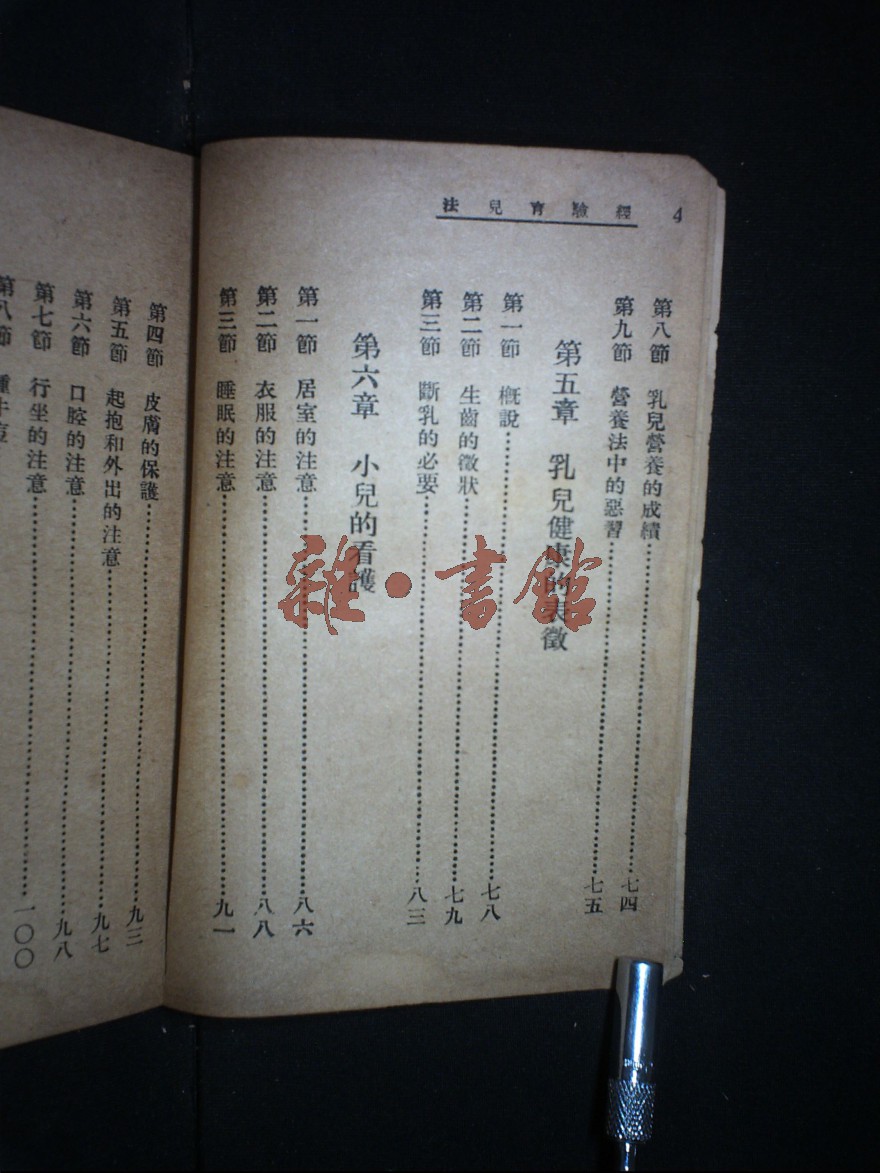 4 經驗育兒法
第八節 乳兒營養的成績……七四
第九節 營養法中的惡習……七五
第五章 乳兒健康的表徵
第一節 概說……七八
第二節 生齒的徵狀……七九
第三節 斷乳的必要……八三
第六章 小兒的看護
第一節 居室的注意……八六
第二節 衣服的注意……八八
第三節 睡眠的注意……九一
第四節 皮膚的保護……九三
第五節 起抱和外出的注意……九七
第六節 口腔的注意……九八
第七節 行坐的注意……一〇〇
第八節 種牛痘
雜·書館